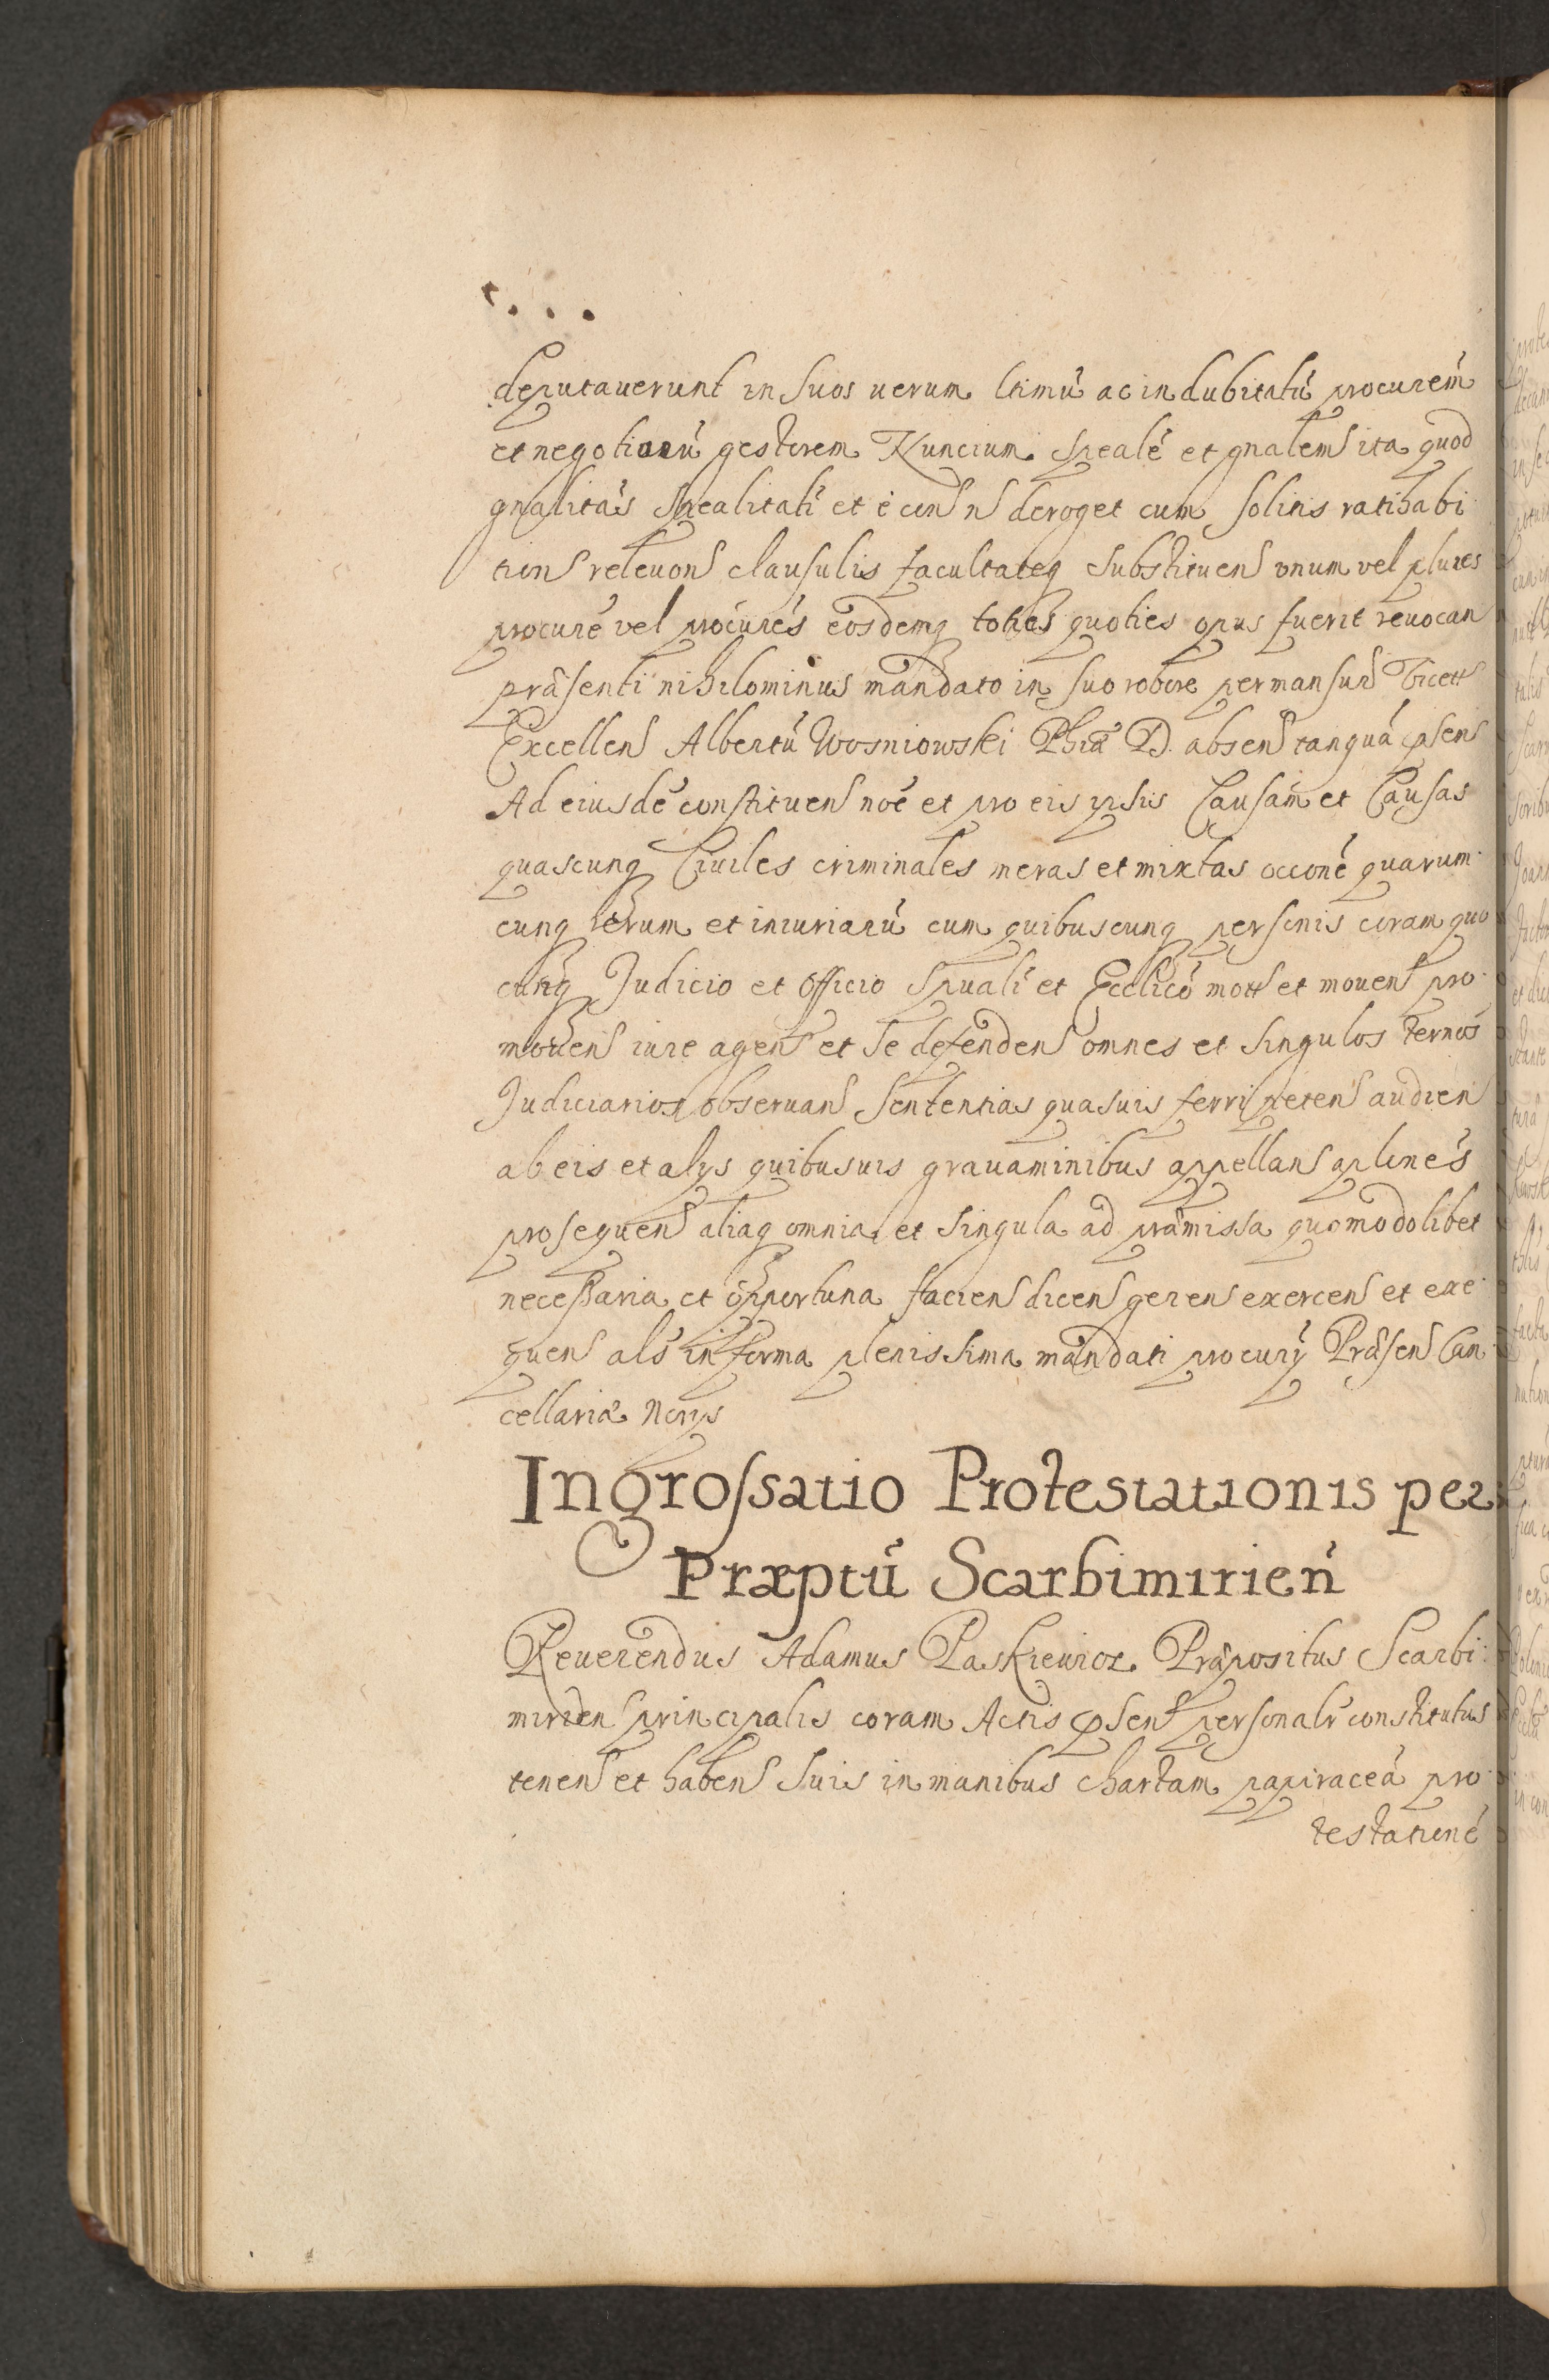 deputauerunt in suos uerum ltimū ac indubitatū procurēm
et negotiorū gestorem Nuncium spealē et gnalem ita quod
gnalitas spealitati et è con n deroget cum solitis ratihabi
tion releuon clausulis facultateq substituen vnum vel plures
procurē vel procurēs eosdemq toties quoties opus fuerit reuocan
præsenti nihilominus mandato in suo robore permansur
Excellen Albertū Wosniowski Phiæ D. absen tanquā psen
Ad eiusdē constituen noē et pro eis ipsis Causam et Causas
quascunq Ciuiles criminales meras et mixtas occonē quarum
cunq rerum et iniuriarū cum quibuscunq personis coram quo
cunq Judicio et Officio Spuali et Ecclicō mott et mouen pro
mouen iure agen et se defenden omnes et singulos ternos
Judiciarios obseruan sententias quasuis ferri peten audien
ab eis et alys quibusuis grauaminibus appellan aplines
prosequen aliaq omnia et singula ad præmissa quomodolibet
necessaria et opportuna facien dicen geren exercen et exe
quen als in forma plenissima mandati procurÿ Præsen Can
cellariæ Norys
Ingrossatio Protestationis per
Præptū Scarbimirień
Reuerendus Adamus Paskiewicz Præpositus Scarbi
mirien principalis coram Actis psent personalr constitutus
tenen et haben suis in manibus chartam papiraceā pro
testationē